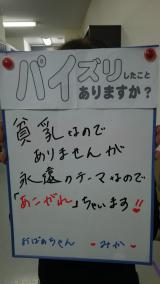 パイズリしたこと
ありますか?
貧乳なので
ありませんが
永遠のテーマなので
「あこがれ」ちゃいます!!
おばあちゃん ♥みか♥